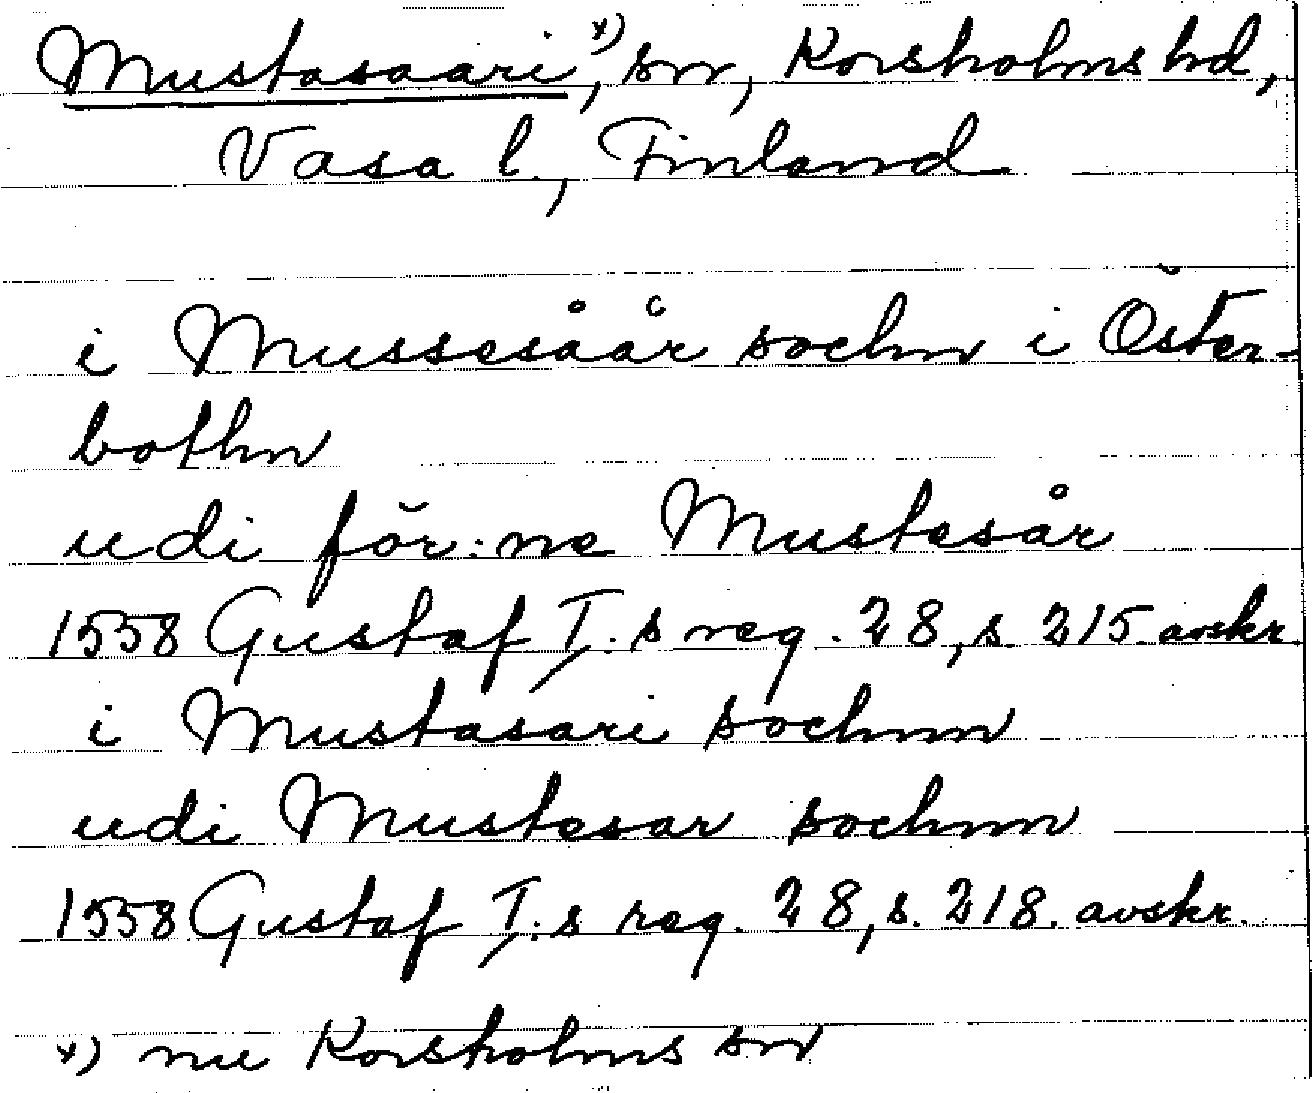 Mustasaari,*) sn, Korsholms hd,
Vasa l., Finland
i Mussesåår sochn i Öster-
bothn
udi för:ne Mustesår
1558 Gustaf I:s reg. 28, s. 215 avskr.
i Mustasari sochnn
udi Mustesar sochnn
1558 Gustaf I:s reg. 28, s. 218. avskr.
*) nu Korsholms sn